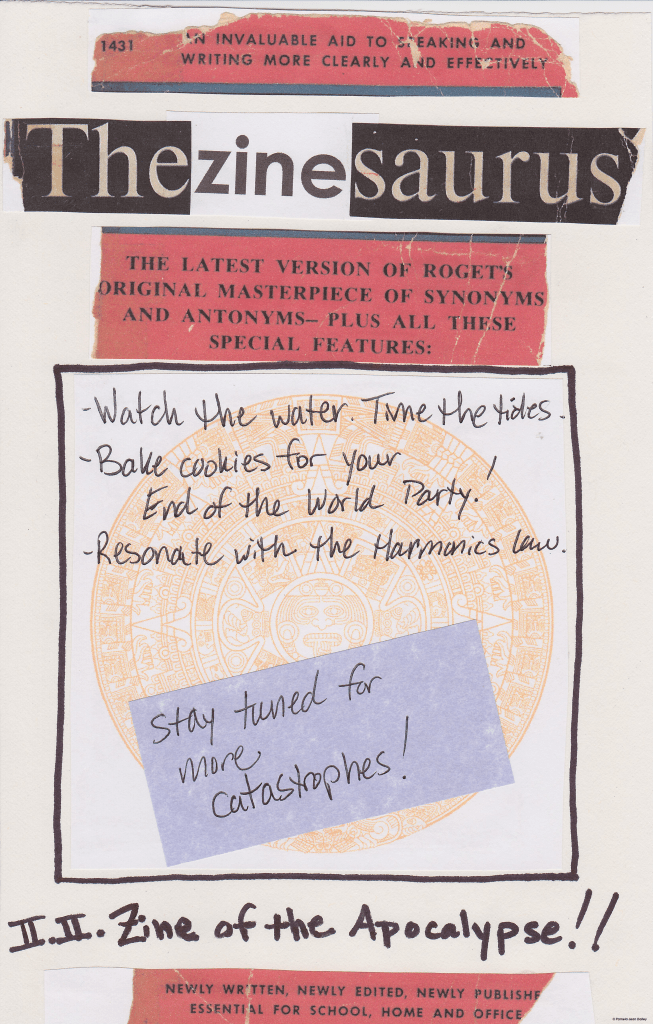 1431 AN INVALUABLE AID TO SPEAKING AND
WRITING MORE CLEARLY AND EFFECTIVELY
Thezinesaurus
THE LATEST VERSION OF ROGET'S
ORIGINAL MASTERPIECE OF SYNONYMS
AND ANTONYMS— PLUS ALL THESE
SPECIAL FEATURES:
-Watch the water. Time the tides.
-Bake cookies for your
End of the World Party!
-Resonate with the Harmonics law.
Stay tuned for
more
catastrophes!
II.II. Zine of the Apocalypse!!
NEWLY WRITTEN, NEWLY EDITED, NEWLY PUBLISHE
ESSENTIAL FOR SCHOOL, HOME AND OFFICE